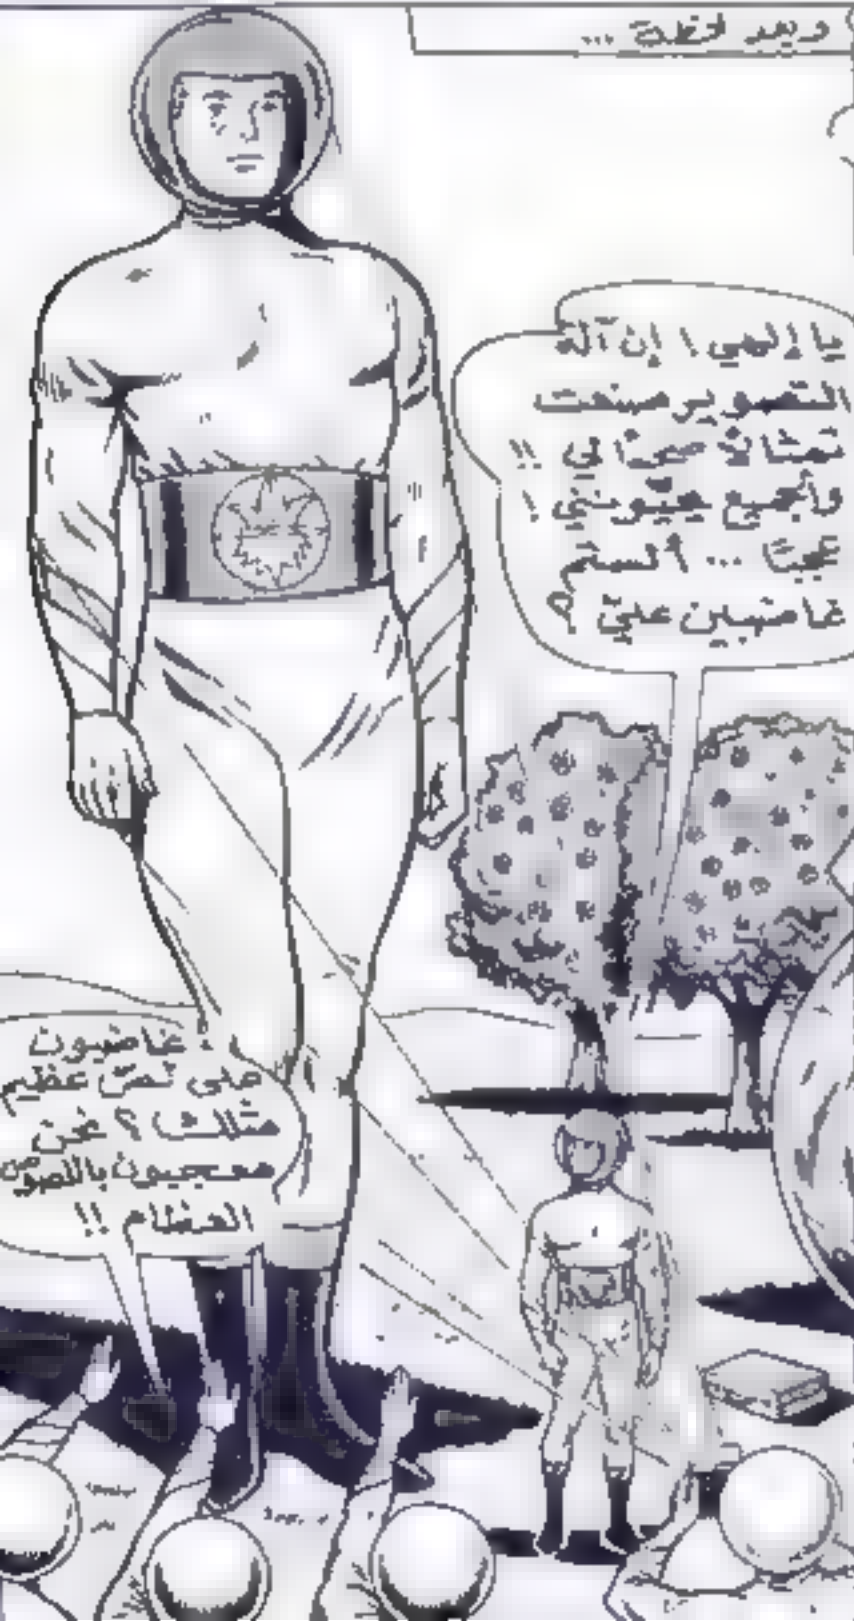 وبعد لحظة ...
يا إلهي ! إن آلة
التصوير صنعت
تمثالاً ضخماً لي !!
والجميع يحيّونني !
عجباً ... ألستم
غاضبين عليّ ؟
غاضبون
على لصّ عظيم
مثلك ؟ نحن
معجبون باللصوص
العظام !!